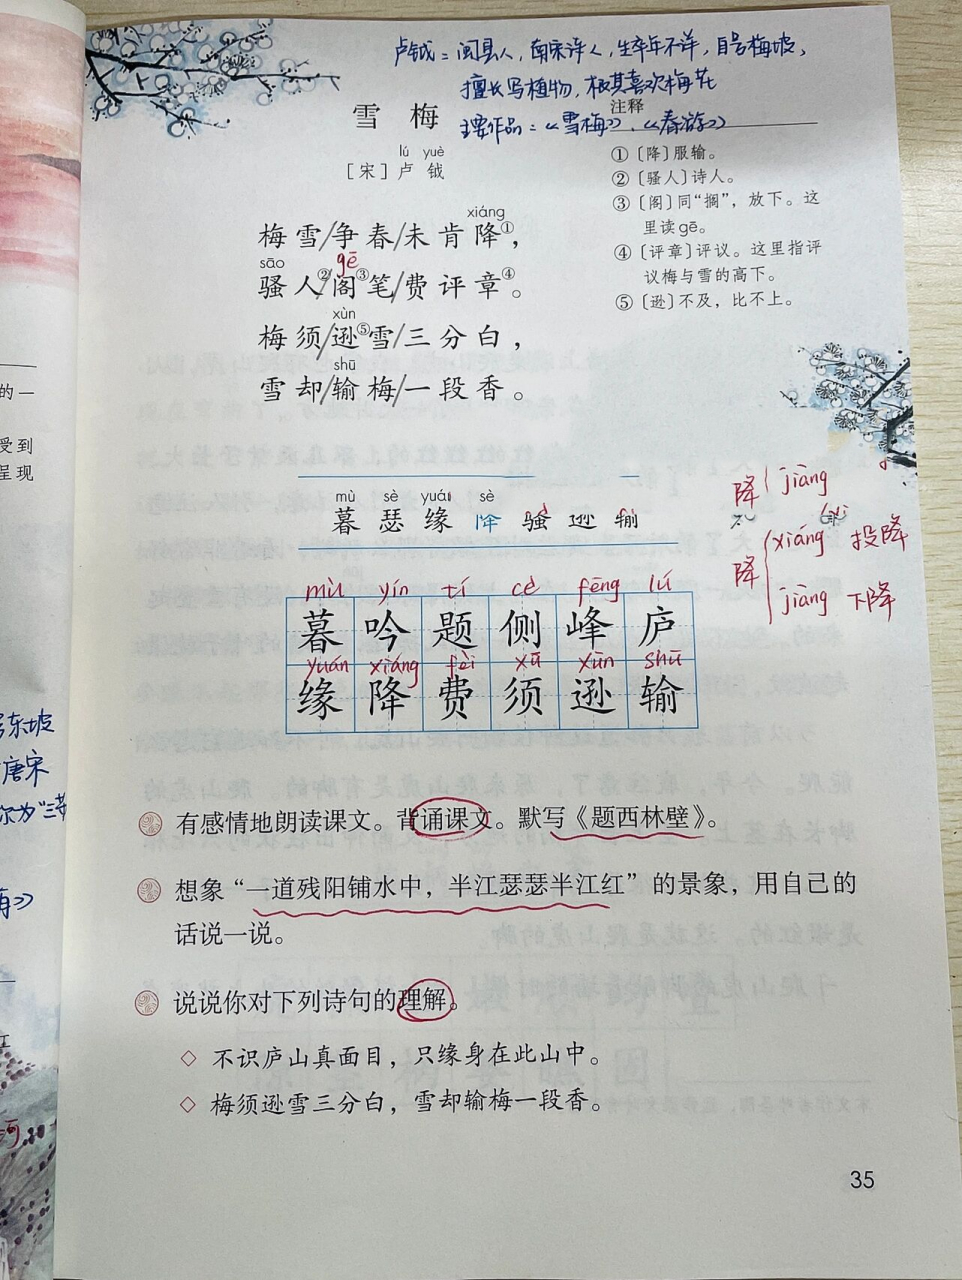 卢钺：闽县人，南宋诗人，生卒年不详，自号梅坡，
擅长写植物，极其喜欢梅花
主要作品：《雪梅》、《春游》
雪 梅
lú yuè
[宋] 卢 钺
xiáng
梅雪/争春/未肯降①，
sāo gē
骚人/②阁③笔/费评章④。
xùn
梅须/逊⑤雪/三分白，
shū
雪却/输梅/一段香。
注释
①〔降〕服输。
②〔骚人〕诗人。
③〔阁〕同“搁”，放下。这
里读gē。
④〔评章〕评议。这里指评
议梅与雪的高下。
⑤〔逊〕不及，比不上。
mù sè yuán
暮 瑟 缘 降 骚 逊 输
降 jiàng
降 xiáng 投降
jiàng 下降
mù yín tí cè fēng lú
暮 吟 题 侧 峰 庐
yuán xiáng fèi xū xùn shū
缘 降 费 须 逊 输
有感情地朗读课文。背诵课文。默写《题西林壁》。
想象“一道残阳铺水中，半江瑟瑟半江红”的景象，用自己的
话说一说。
说说你对下列诗句的理解。
◇ 不识庐山真面目，只缘身在此山中。
◇ 梅须逊雪三分白，雪却输梅一段香。
35
的一
受到
呈现
号东坡
唐宋